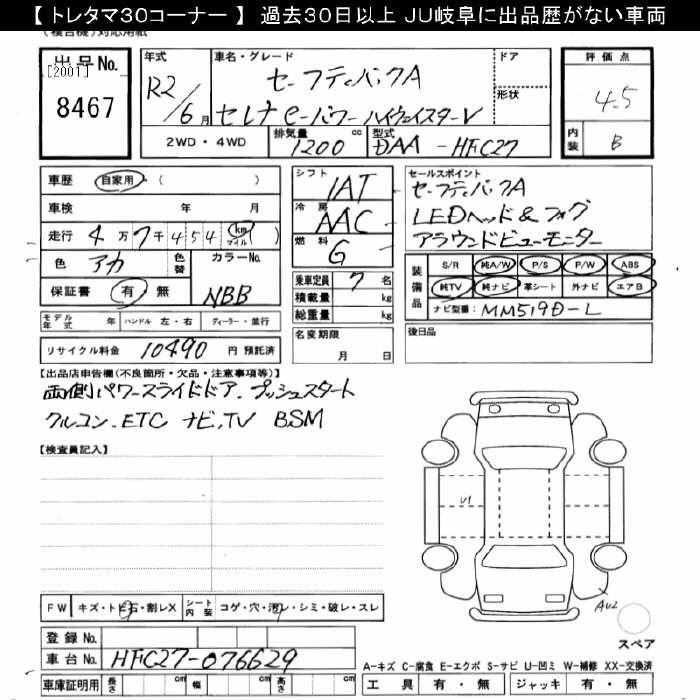 【 トレタマ30コーナー 】 過去30日以上 JU岐阜に出品歴がない車両
(複合機)対応用紙
出品No. [2001] 8467
年式 R2/6月
車名・グレード セーフティパックA
セレナ e-パワー ハイウェイスターV
ドア
形状
評価点 4.5
内装 B
2WD・4WD
排気量 1200 cc
型式 DAA-HFC27
車歴 自家用 ( )
車検 年 月
走行 4万7千454 km マイル ( )
色 アカ 色替
カラーNo. NBB
保証書 有 無
シフト IAT
冷房 AAC
燃料 G
乗車定員 7 名
積載量 kg
総重量 kg
セールスポイント
セーフティパックA
LEDヘッド&フォグ
アラウンドビューモニター
装備品 S/R 純A/W P/S P/W ABS
純TV 純ナビ 革シート 外ナビ エアB
ナビ型番: MM519D-L
モデル年式 年 ハンドル 左・右 ディーラー・並行
リサイクル料金 10490 円 預託済
名変期限 月 日
後日品
【出品店申告欄(不良箇所・欠品・注意事項等)】
両側パワースライドドア. プッシュスタート
クルコン. ETC ナビ,TV BSM
【検査員記入】
U1
AU2
FW キズ・トビ石・割レX シート内装 コゲ・穴・汚レ・シミ・破レ・スレ
スペア
登録No.
車台No. HFC27-076629
A-キズ C-腐食 E-エクボ S-サビ U-凹ミ W-補修 XX-交換済
車庫証明用 長さ cm 幅 cm 高さ cm
工具 有・無 ジャッキ 有・無